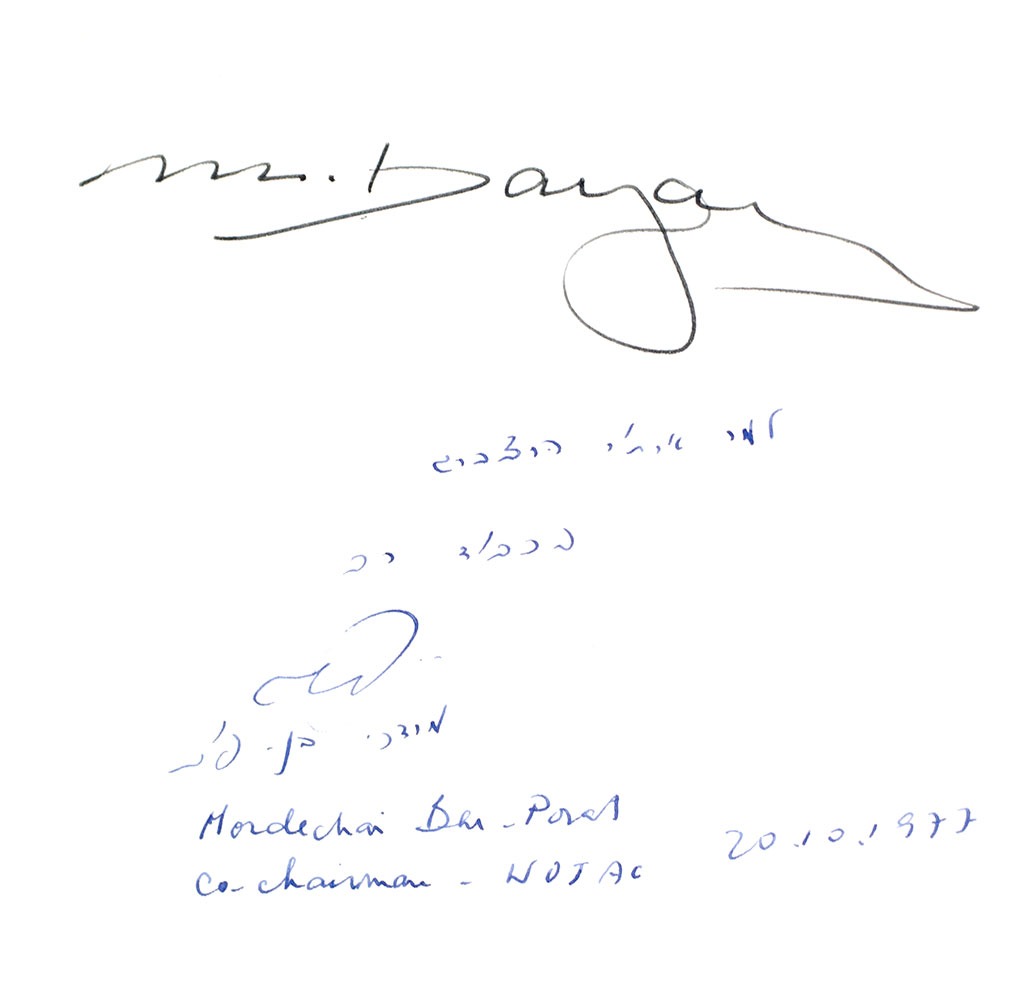 M. Dayan
למר אירתי הרצברג
בכב'ד רב
מרדכי בן-פורת
Mordechai Ben-Porat
Co-chairman - WOJAC 20.10.1977